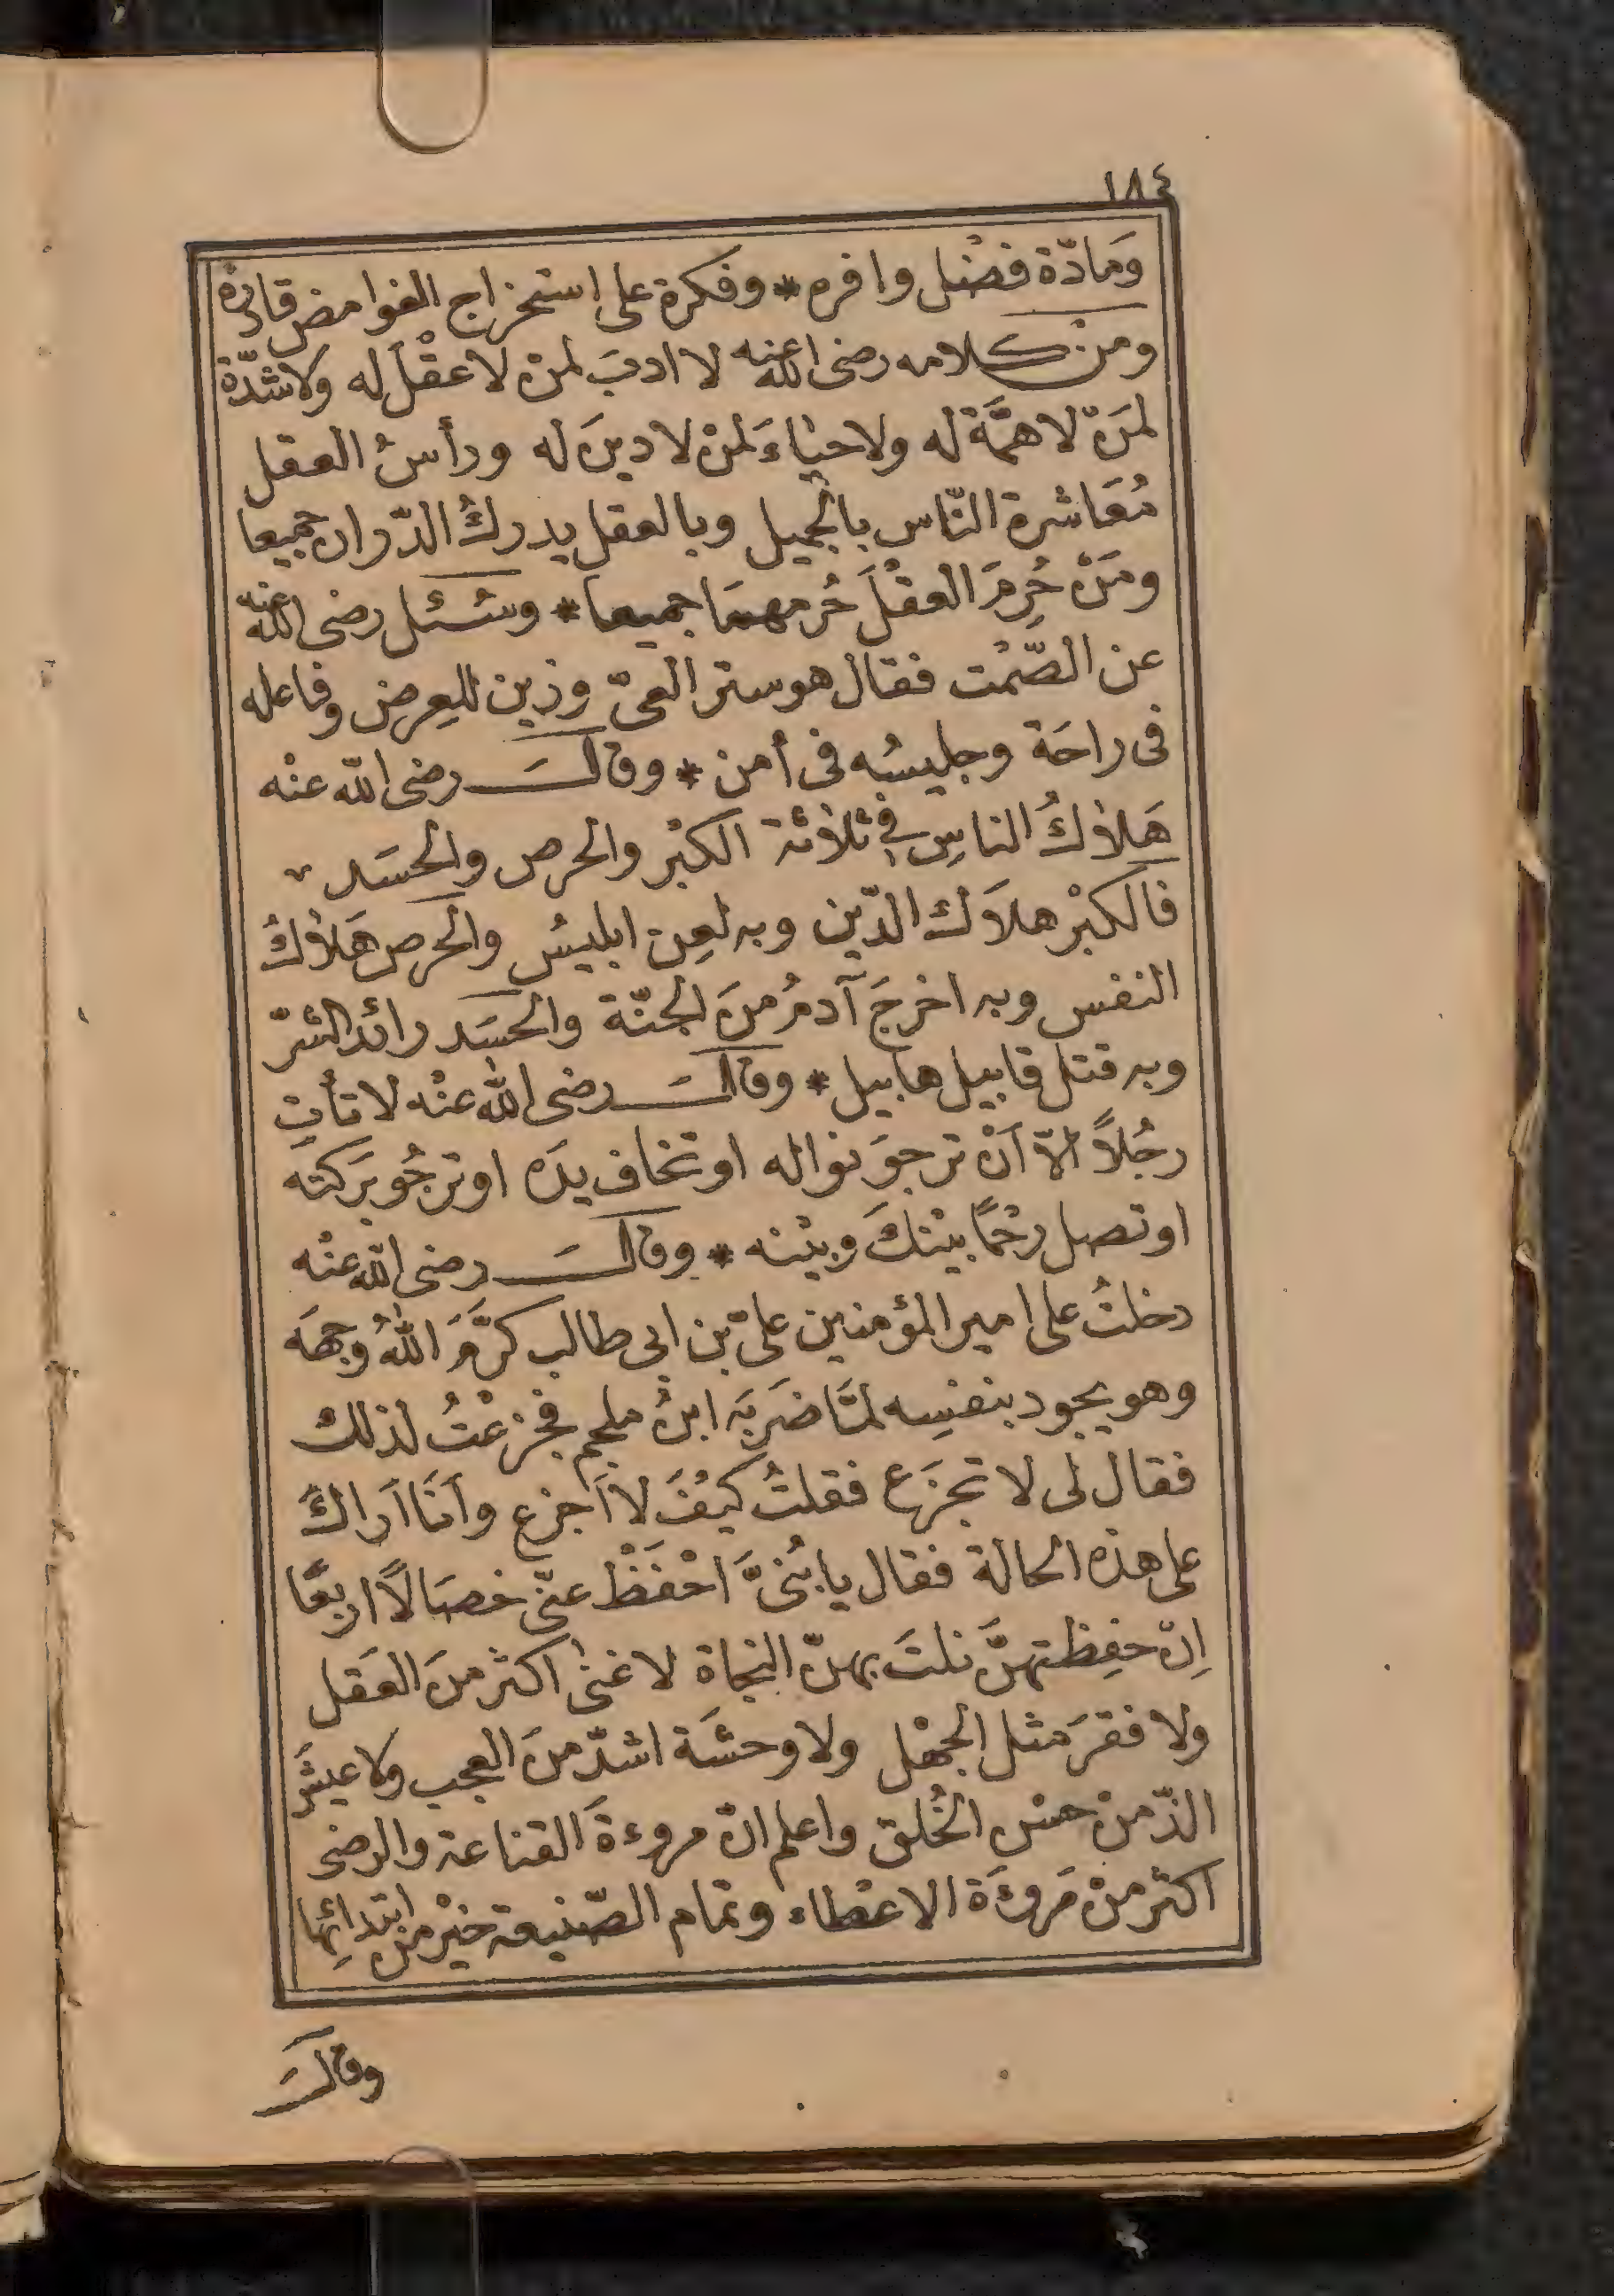 ١٨٤
وَمَادّة فضْل وافره * وفكرة على استخراج الغوامض قادرة
ومن كلامه رضى الله عنه لا ادبَ لمنْ لا عقْلَ له ولا شدّة
لمَنْ لا همَّةَ له ولا حيَاءَ لمنْ لا دينَ له ورأسُ العقل
مُعَاشرة النّاس بالجميل وبالعقل يدركُ الدّاران جميعا
ومَنْ حُرِمَ العقْلَ حُرمهمَا جميعا * وسُئل رضى الله عنه
عن الصّمْت فقال هو ستر العىّ وزين للعِرض وفاعله
فى راحَة وجليسُه فى أمن * وقالَ رضى الله عنْه
هَلاكُ الناسِ فى ثلاثة الكبْر والحرص والحسَد
فالكبْر هلاَك الدّين وبه لعِن ابليسُ والحرص هَلاكُ
النفس وبه اخرجَ آدمُ منَ الجنّة والحسَد رائد الشرّ
وبه قتل قابيل هابيل * وقالَ رضى الله عنْه لا تأتِ
رجُلاً الاّ أنْ ترجوَ نواله او تخاف يدَه او ترجُو بَركته
او تصل رحْمًا بيْنكَ وبيْنه * وقالَ رضى الله عنْه
دخلتُ على امير المؤمنين علىّ بن ابى طالب كرَّمَ اللهُ وجهَه
وهو يجود بنفسِه لمَّا ضَربَه ابنُ ملجم فجزعْتُ لذلك
فقال لى لا تجزَع فقلتُ كيْفَ لا أجزع وأنَا أراكَ
على هذه الحالة فقال يا بُنىَّ احْفَظْ عنّى خصَالاً اربعًا
اِنْ حفِظتهنَّ نلتَ بهنّ النجاة لا غنى اكثر منَ العَقل
ولا فقرَ مثل الجهْل ولا وحشَة اشدّ منَ العجب ولا عيشَ
الذّ منْ حسْن الخُلق واعلم انّ مروءةَ القناعة والرضى
اكثر منْ مَروءَة الاعْطاء وتمام الصّنيعة خيْر منْ ابتدائِها
وقالَ